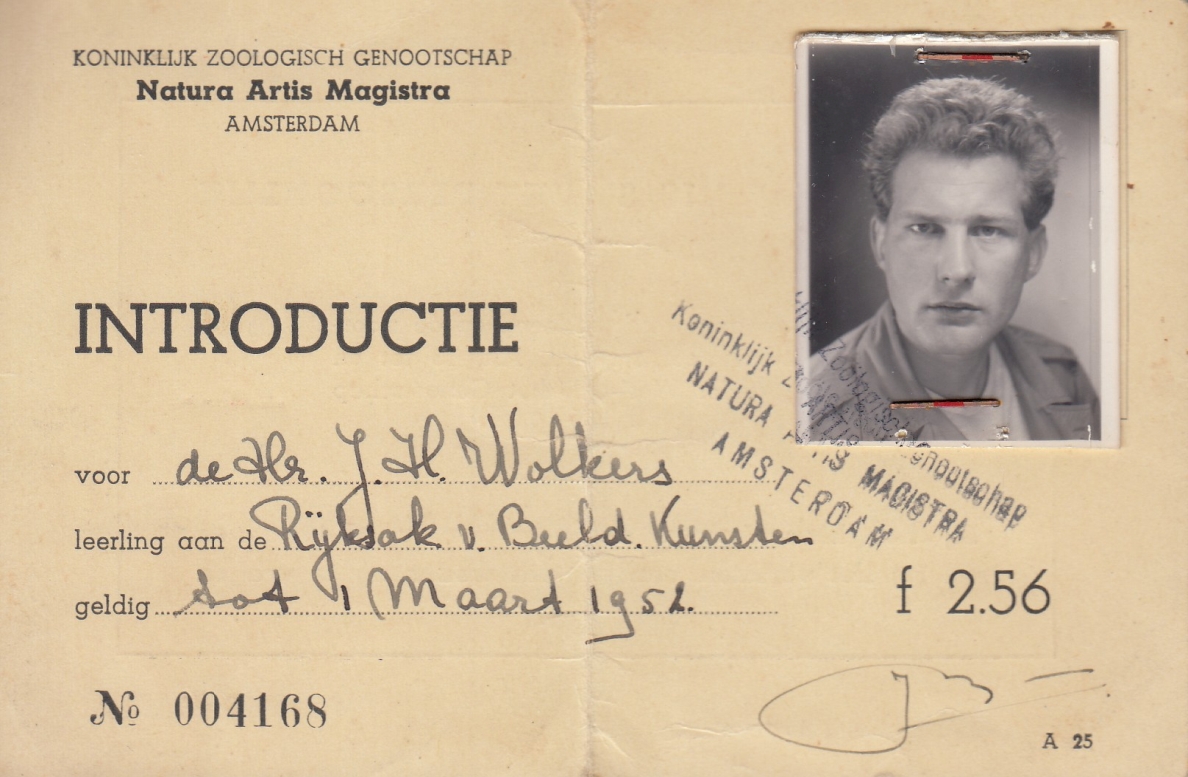 KONINKLIJK ZOOLOGISCH GENOOTSCHAP
Natura Artis Magistra
AMSTERDAM
INTRODUCTIE
voor de Hr. J. H. Wolkers
leerling aan de Rijksak v. Beeld. Kunsten
geldig tot 1 Maart 1952.
Koninklijk Zoölogisch Genootschap
NATURA ARTIS MAGISTRA
AMSTERDAM
f 2.56
№ 004168
A 25